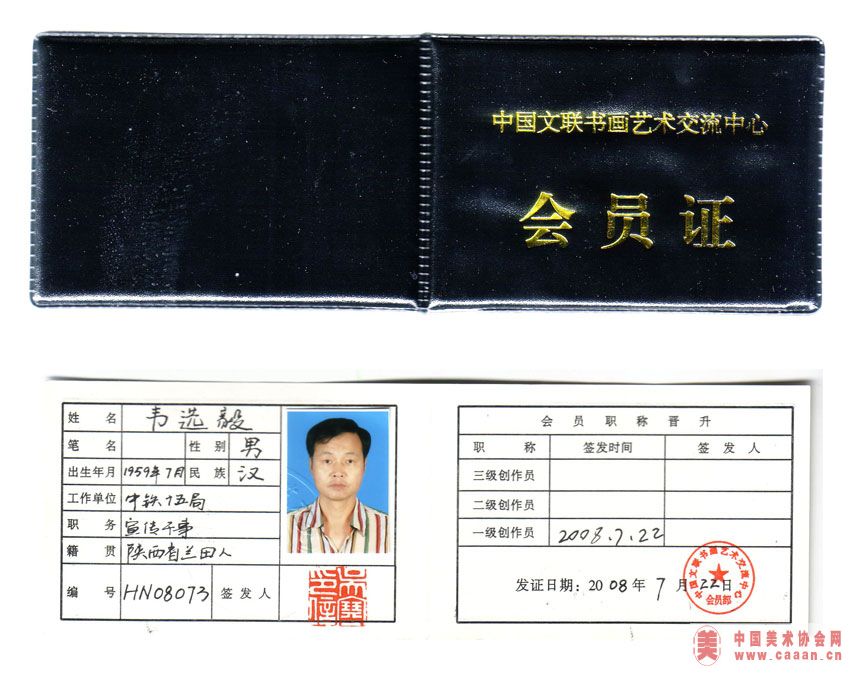 中国文联书画艺术交流中心
会员证
姓名 韦选毅
笔名 性别 男
出生年月 1959年7月 民族 汉
工作单位 中铁十五局
职务 宣传干事
籍贯 陕西省兰田人
编号 HN08073 签发人
会员职称晋升
职称 签发时间 签发人
三级创作员
二级创作员
一级创作员 2008.7.22
发证日期：2008年7月22日
中国文联书画艺术交流中心
会员部
美 中国美术协会网
www.caaan.cn